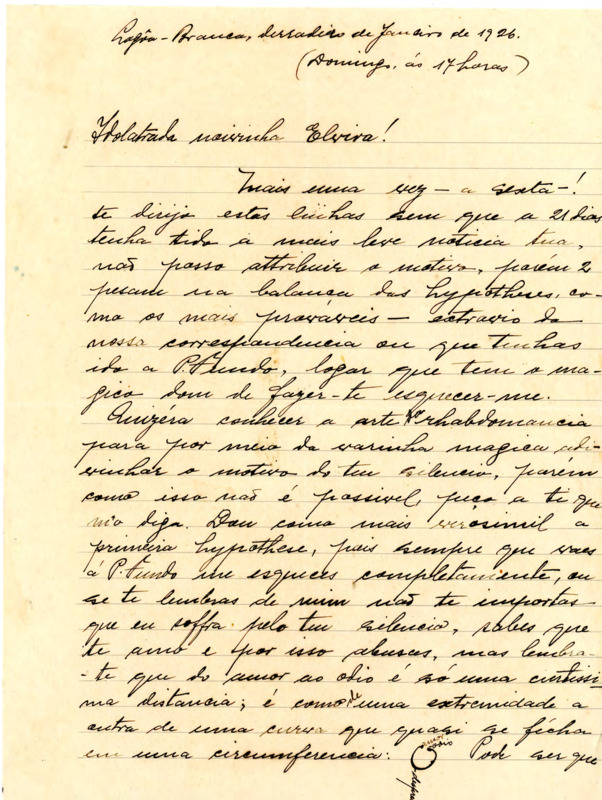 Lagôa-Branca, derradeiro de Janeiro de 1926.
(Domingo, ás 17 horas)
Idolatrada noivinha Elvira!
Mais uma vez — a sexta —!
te dirijo estas linhas sem que a 21 dias
tenha tido a mais leve noticia tua,
não posso attribuir o motivo, porém 2
pesam na balança das hypotheses, co-
mo os mais prováveis — extravio da
nossa correspondencia ou que tenhas
ido a P. Fundo, logar que tem o ma-
gico dom de fazer-te esquecer-me.
Quizéra conhecer a arte da rhabdomancia
para por meio da varinha magica adi-
vinhar o motivo do teu silencio, porém
como isso não é possivel, peço a ti que
m'o diga. Dou como mais verosimil a
primeira hypothese, pois sempre que vaes
á P. Fundo me esqueces completamente, ou
se te lembras de mim não te importas
que eu soffra pelo teu silencio, sabes que
te amo e por isso abusas, mas lembra-
-te que do amor ao odio é só uma curtissi
ma distancia; é como de uma extremidade a
outra de uma curva que quasi se fécha
em uma circumferencia: amor odio Pode ser que